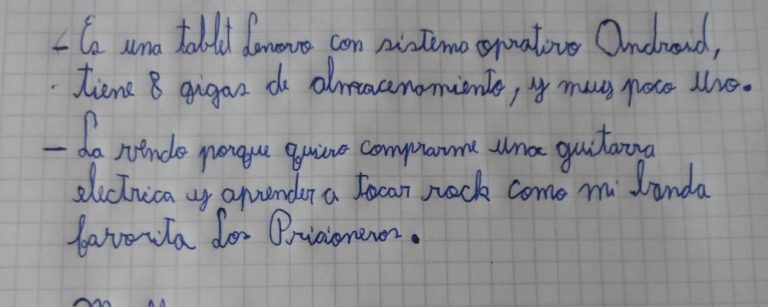 - Es una tablet Lenovo con sistema oprativo Android,
. tiene 8 gigas de almacenamiento, y muy poco uso.
- La vendo porque quiero comprarme una guitarra
electrica y aprender a tocar rock como mi banda
favorita Los Prisioneros.